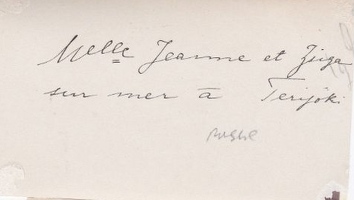 Melle Jeanne et Ziga
sur mer à Terijoki
russe